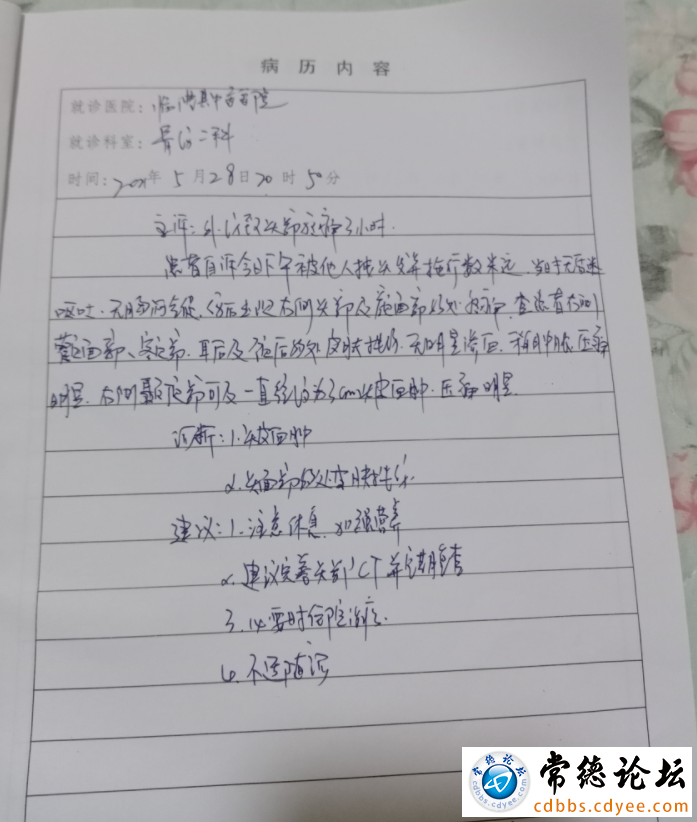 病 历 内 容
就诊医院: 临澧县中医医院
就诊科室: 骨伤二科
时间: 年 5 月 28 日 20 时 50 分
主诉: 外伤致头部疼痛3小时.
患者自诉今日下午被他人 头发并拖行数米远. 当时无恶心
呕吐. 及 部 疼痛, 查患者右侧
面部、 部. 耳后及 后 皮肤挫伤. 无明显渗血. 肿胀. 压痛
明显. 右侧 顶部可及一直径约为3cm头皮血肿. 压痛明显.
诊断: 1. 头皮血肿
2. 头面部多处皮肤挫伤
建议: 1. 注意休息. 加强营养
2. 建议完善头部CT并定期复查
3. 必要时住院治疗.
4. 不适随诊
常德论坛
cdbbs.cdyee.com